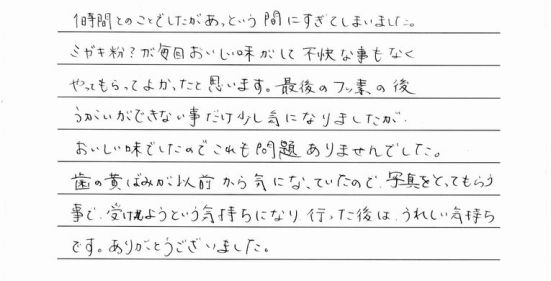 1時間とのことでしたがあっという間にすぎてしまいました。
ミガキ粉?が毎回おいしい味がして不快な事もなく
やってもらってよかったと思います。最後のフッ素の後
うがいができない事だけ少し気になりましたが、
おいしい味でしたのでこれも問題ありませんでした。
歯の黄ばみが以前から気になっていたので、写真をとってもらう
事で、受けようという気持ちになり、行った後は、うれしい気持ち
です。ありがとうございました。